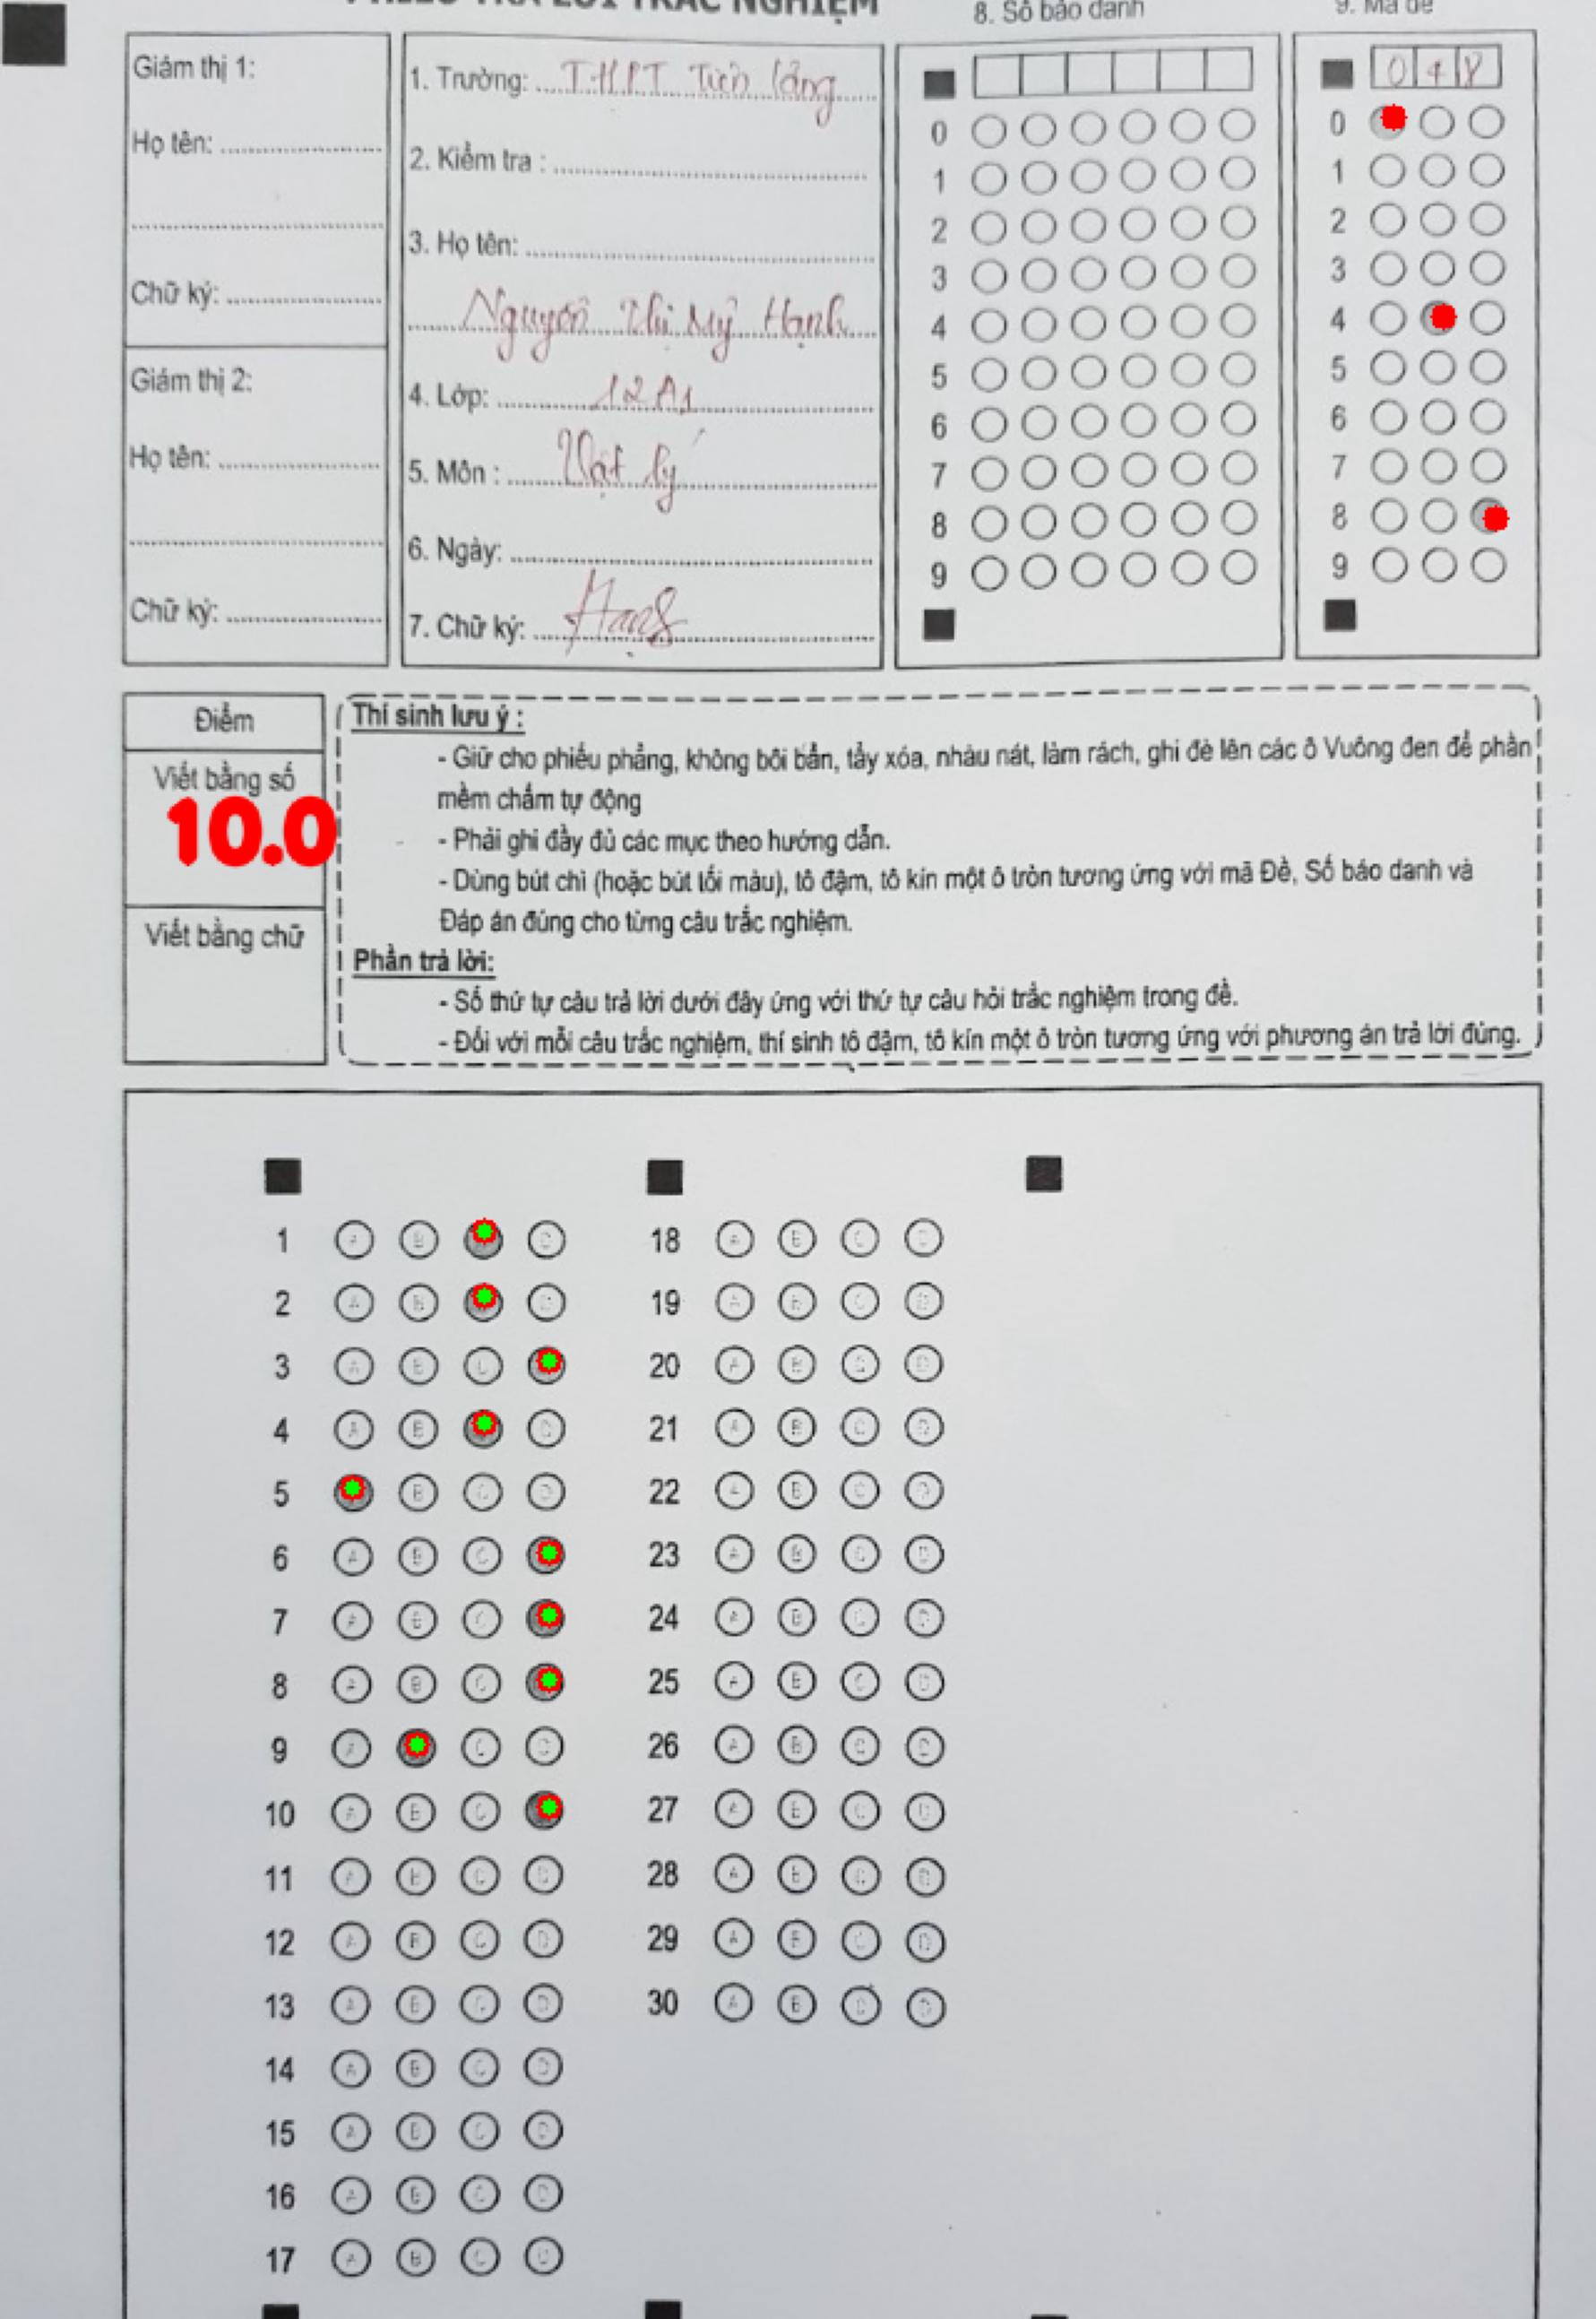 PHIẾU TRẢ LỜI TRẮC NGHIỆM
8. Số báo danh
9. Mã đề
Giám thị 1:
Họ tên:
Chữ ký:
Giám thị 2:
Họ tên:
Chữ ký:
1. Trường: THPT
2. Kiểm tra :
3. Họ tên:
Nguyễn Thị Mỹ Hạnh
4. Lớp: 12A1
5. Môn : Vật lý
6. Ngày:
7. Chữ ký:
0
1
2
3
4
5
6
7
8
9
0 4 8
0
1
2
3
4
5
6
7
8
9
Điểm
Viết bằng số
10.0
Viết bằng chữ
Thí sinh lưu ý :
- Giữ cho phiếu phẳng, không bôi bẩn, tẩy xóa, nhàu nát, làm rách, ghi đè lên các ô Vuông đen để phần
mềm chấm tự động
- Phải ghi đầy đủ các mục theo hướng dẫn.
- Dùng bút chì (hoặc bút tối màu), tô đậm, tô kín một ô tròn tương ứng với mã Đề, Số báo danh và
Đáp án đúng cho từng câu trắc nghiệm.
Phần trả lời:
- Số thứ tự câu trả lời dưới đây ứng với thứ tự câu hỏi trắc nghiệm trong đề.
- Đối với mỗi câu trắc nghiệm, thí sinh tô đậm, tô kín một ô tròn tương ứng với phương án trả lời đúng.
1 A B D
2 A B D
3 A B C
4 A B D
5 B C D
6 A B C
7 A B C
8 A B C
9 A C D
10 A B C
11 A B C D
12 A B C D
13 A B C D
14 A B C D
15 A B C D
16 A B C D
17 A B C D
18 A B C D
19 A B C D
20 A B C D
21 A B C D
22 A B C D
23 A B C D
24 A B C D
25 A B C D
26 A B C D
27 A B C D
28 A B C D
29 A B C D
30 A B C D